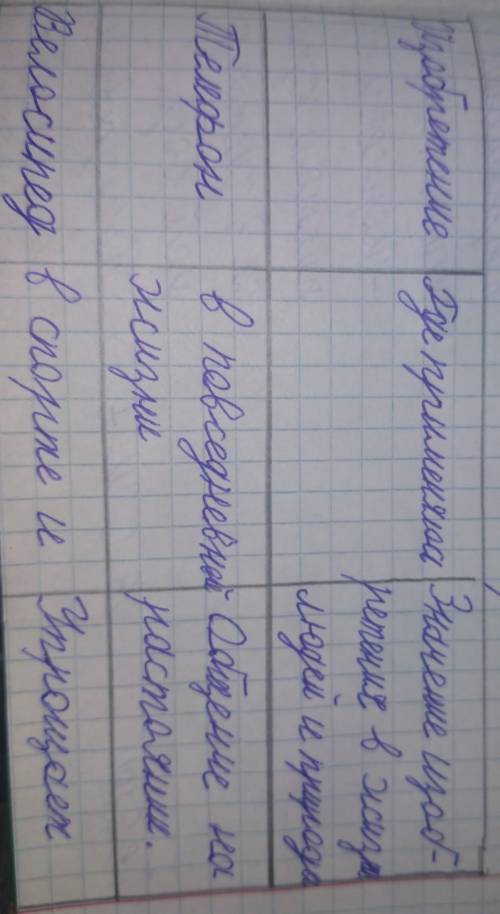 Изобретение
Где применяюся
Значение изоб-
ретения в жизни
людей и природы
Телефон
в повседневной
жизни
Общение на
растоянии.
Велосипед
в спорте и
Упрощает